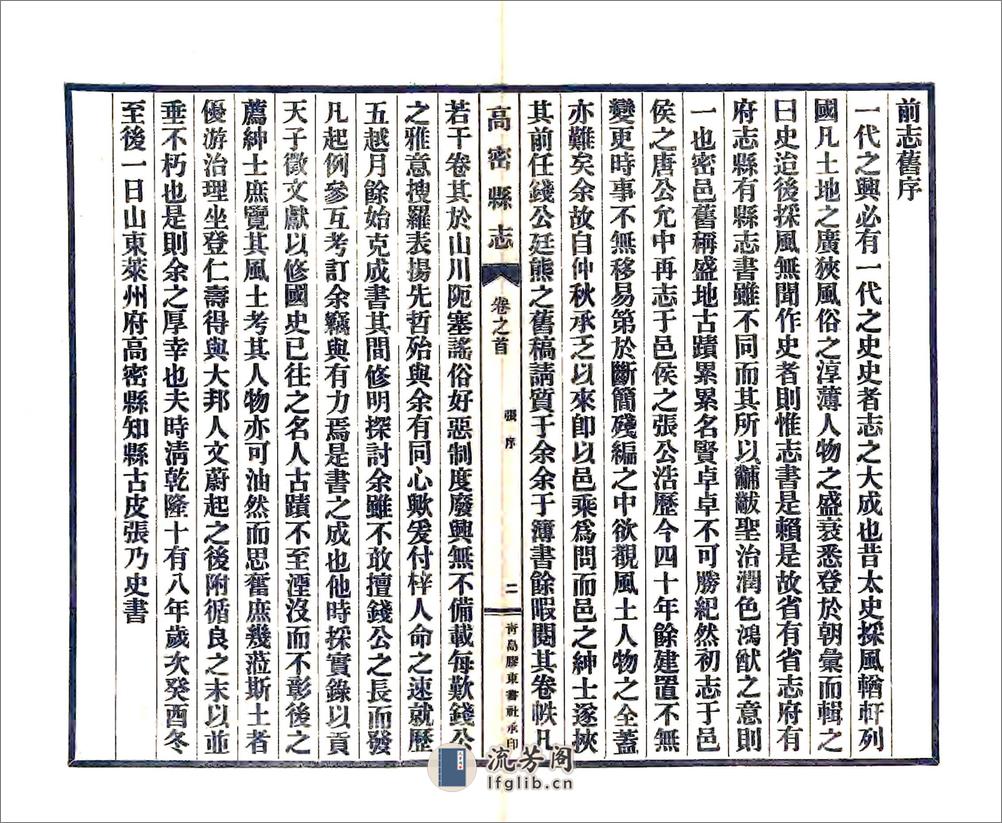 前志舊序
一代之興必有一代之史史者志之大成也昔太史採風輶軒列
國凡土地之廣狹風俗之淳薄人物之盛衰悉登於朝彙而輯之
曰史迨後採風無聞作史者則惟志書是賴是故省有省志府有
府志縣有縣志書雖不同而其所以黼黻聖治潤色鴻猷之意則
一也密邑舊稱盛地古蹟累累名賢卓卓不可勝紀然初志于邑
侯之唐公允中再志于邑侯之張公浩歷今四十年餘建置不無
變更時事不無移易第於斷簡殘編之中欲覩風土人物之全蓋
亦難矣余故自仲秋承乏以來卽以邑乘爲問而邑之紳士遂挾
其前任錢公廷熊之舊稿請質于余余于簿書餘暇閱其卷帙凡
高密縣志
卷之首
張序
二
靑島膠東書社承印
若干卷其於山川阨塞謠俗好惡制度廢興無不備載每歎錢公
之雅意搜羅表揚先哲殆與余有同心歟爰付梓人命之速就歷
五越月餘始克成書其間修明探討余雖不敢擅錢公之長而發
凡起例參互考訂余竊與有力焉是書之成也他時採實錄以貢
天子徵文獻以修國史已往之名人古蹟不至湮沒而不彰後之
薦紳士庶覽其風土考其人物亦可油然而思奮庶幾蒞斯土者
優游治理坐登仁壽得與大邦人文蔚起之後附循良之末以並
垂不朽也是則余之厚幸也夫時淸乾隆十有八年歲次癸酉冬
至後一日山東萊州府高密縣知縣古皮張乃史書
流芳阁
lfglib.cn